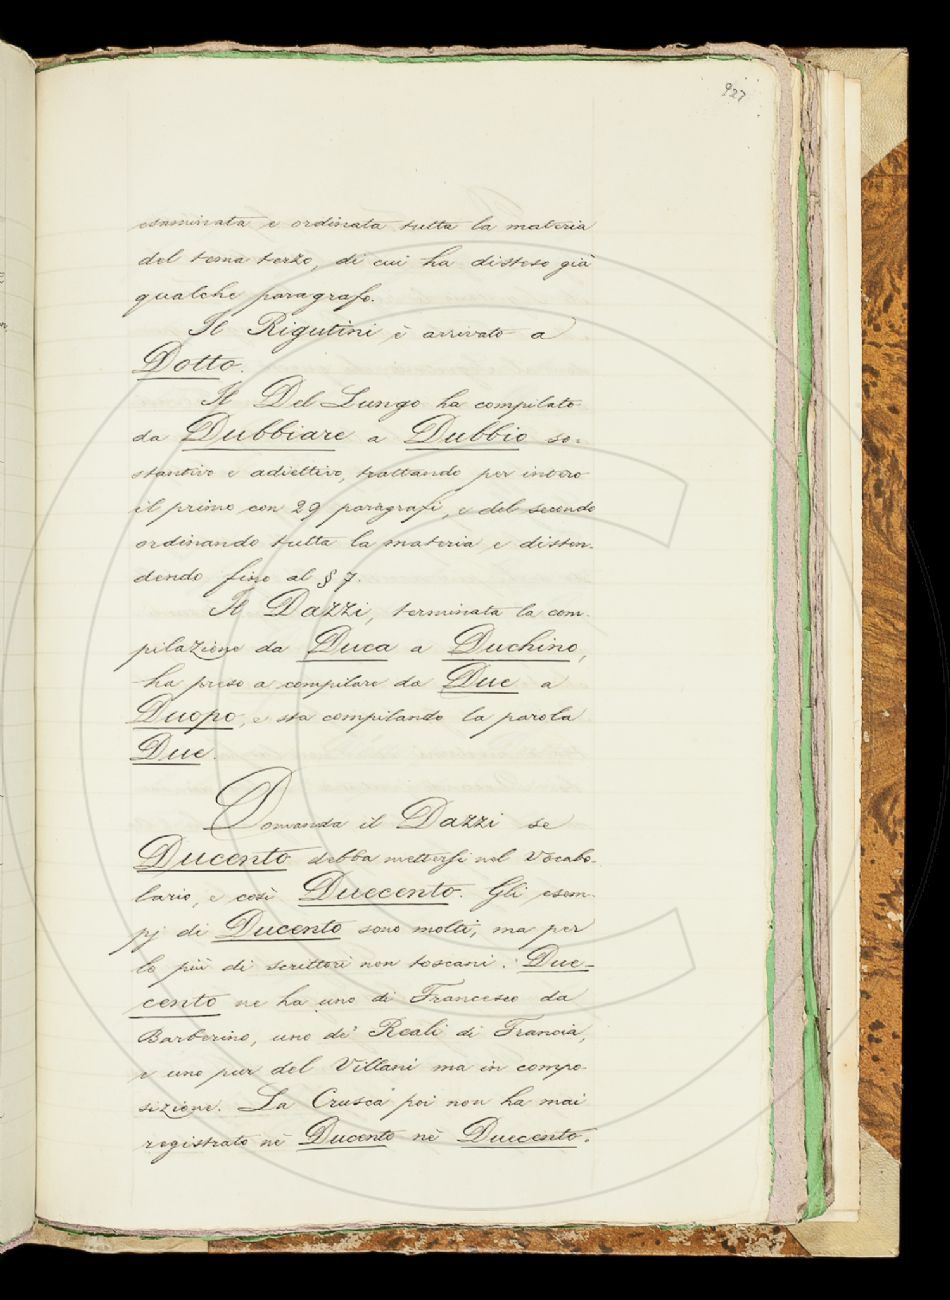 927
esaminata e ordinata tutta la materia
del tema terzo, di cui ha disteso già
qualche paragrafo.
Il Rigutini è arrivato a
Dotto.
Il Del Lungo ha compilato
da Dubbiare a Dubbio so-
stantivo e adiettivo, trattando per intero
il primo con 29 paragrafi, e del secondo
ordinando tutta la materia e disten-
dendo fino al § 7.
Il Dazzi, terminata la com-
pilazione da Duca a Duchino,
ha preso a compilare da Due a
Duopo, e sta compilando la parola
Due.
Domanda il Dazzi se
Ducento debba mettersi nel Vocabo-
lario, e così Duecento. Gli esem-
pj di Ducento sono molti, ma per
lo più di scrittori non toscani: Due-
cento ne ha uno di Francesco da
Barberino, uno de' Reali di Francia,
e uno pur del Villani ma in compo-
sizione. La Crusca poi non ha mai
registrato nè Ducento nè Duecento.